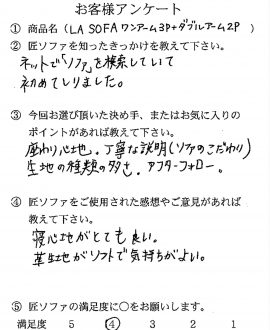 お客様アンケート
① 商品名(LA SOFA ワンアーム3P+ダブルアーム2P )
② 匠ソファを知ったきっかけを教えて下さい。
ネットで「ソファ」を検索していて
初めてしりました。
③ 今回お選び頂いた決め手、またはお気に入りの
ポイントがあれば教えて下さい。
座わり心地。丁寧な説明(ソファのこだわり)
生地の種類の多さ。アフターフォロー。
④ 匠ソファをご使用された感想やご意見があれば
教えて下さい。
寝心地がとても良い。
革生地がソフトで気持ちがよい。
⑤ 匠ソファの満足度に○をお願いします。
満足度 5 ④ 3 2 1